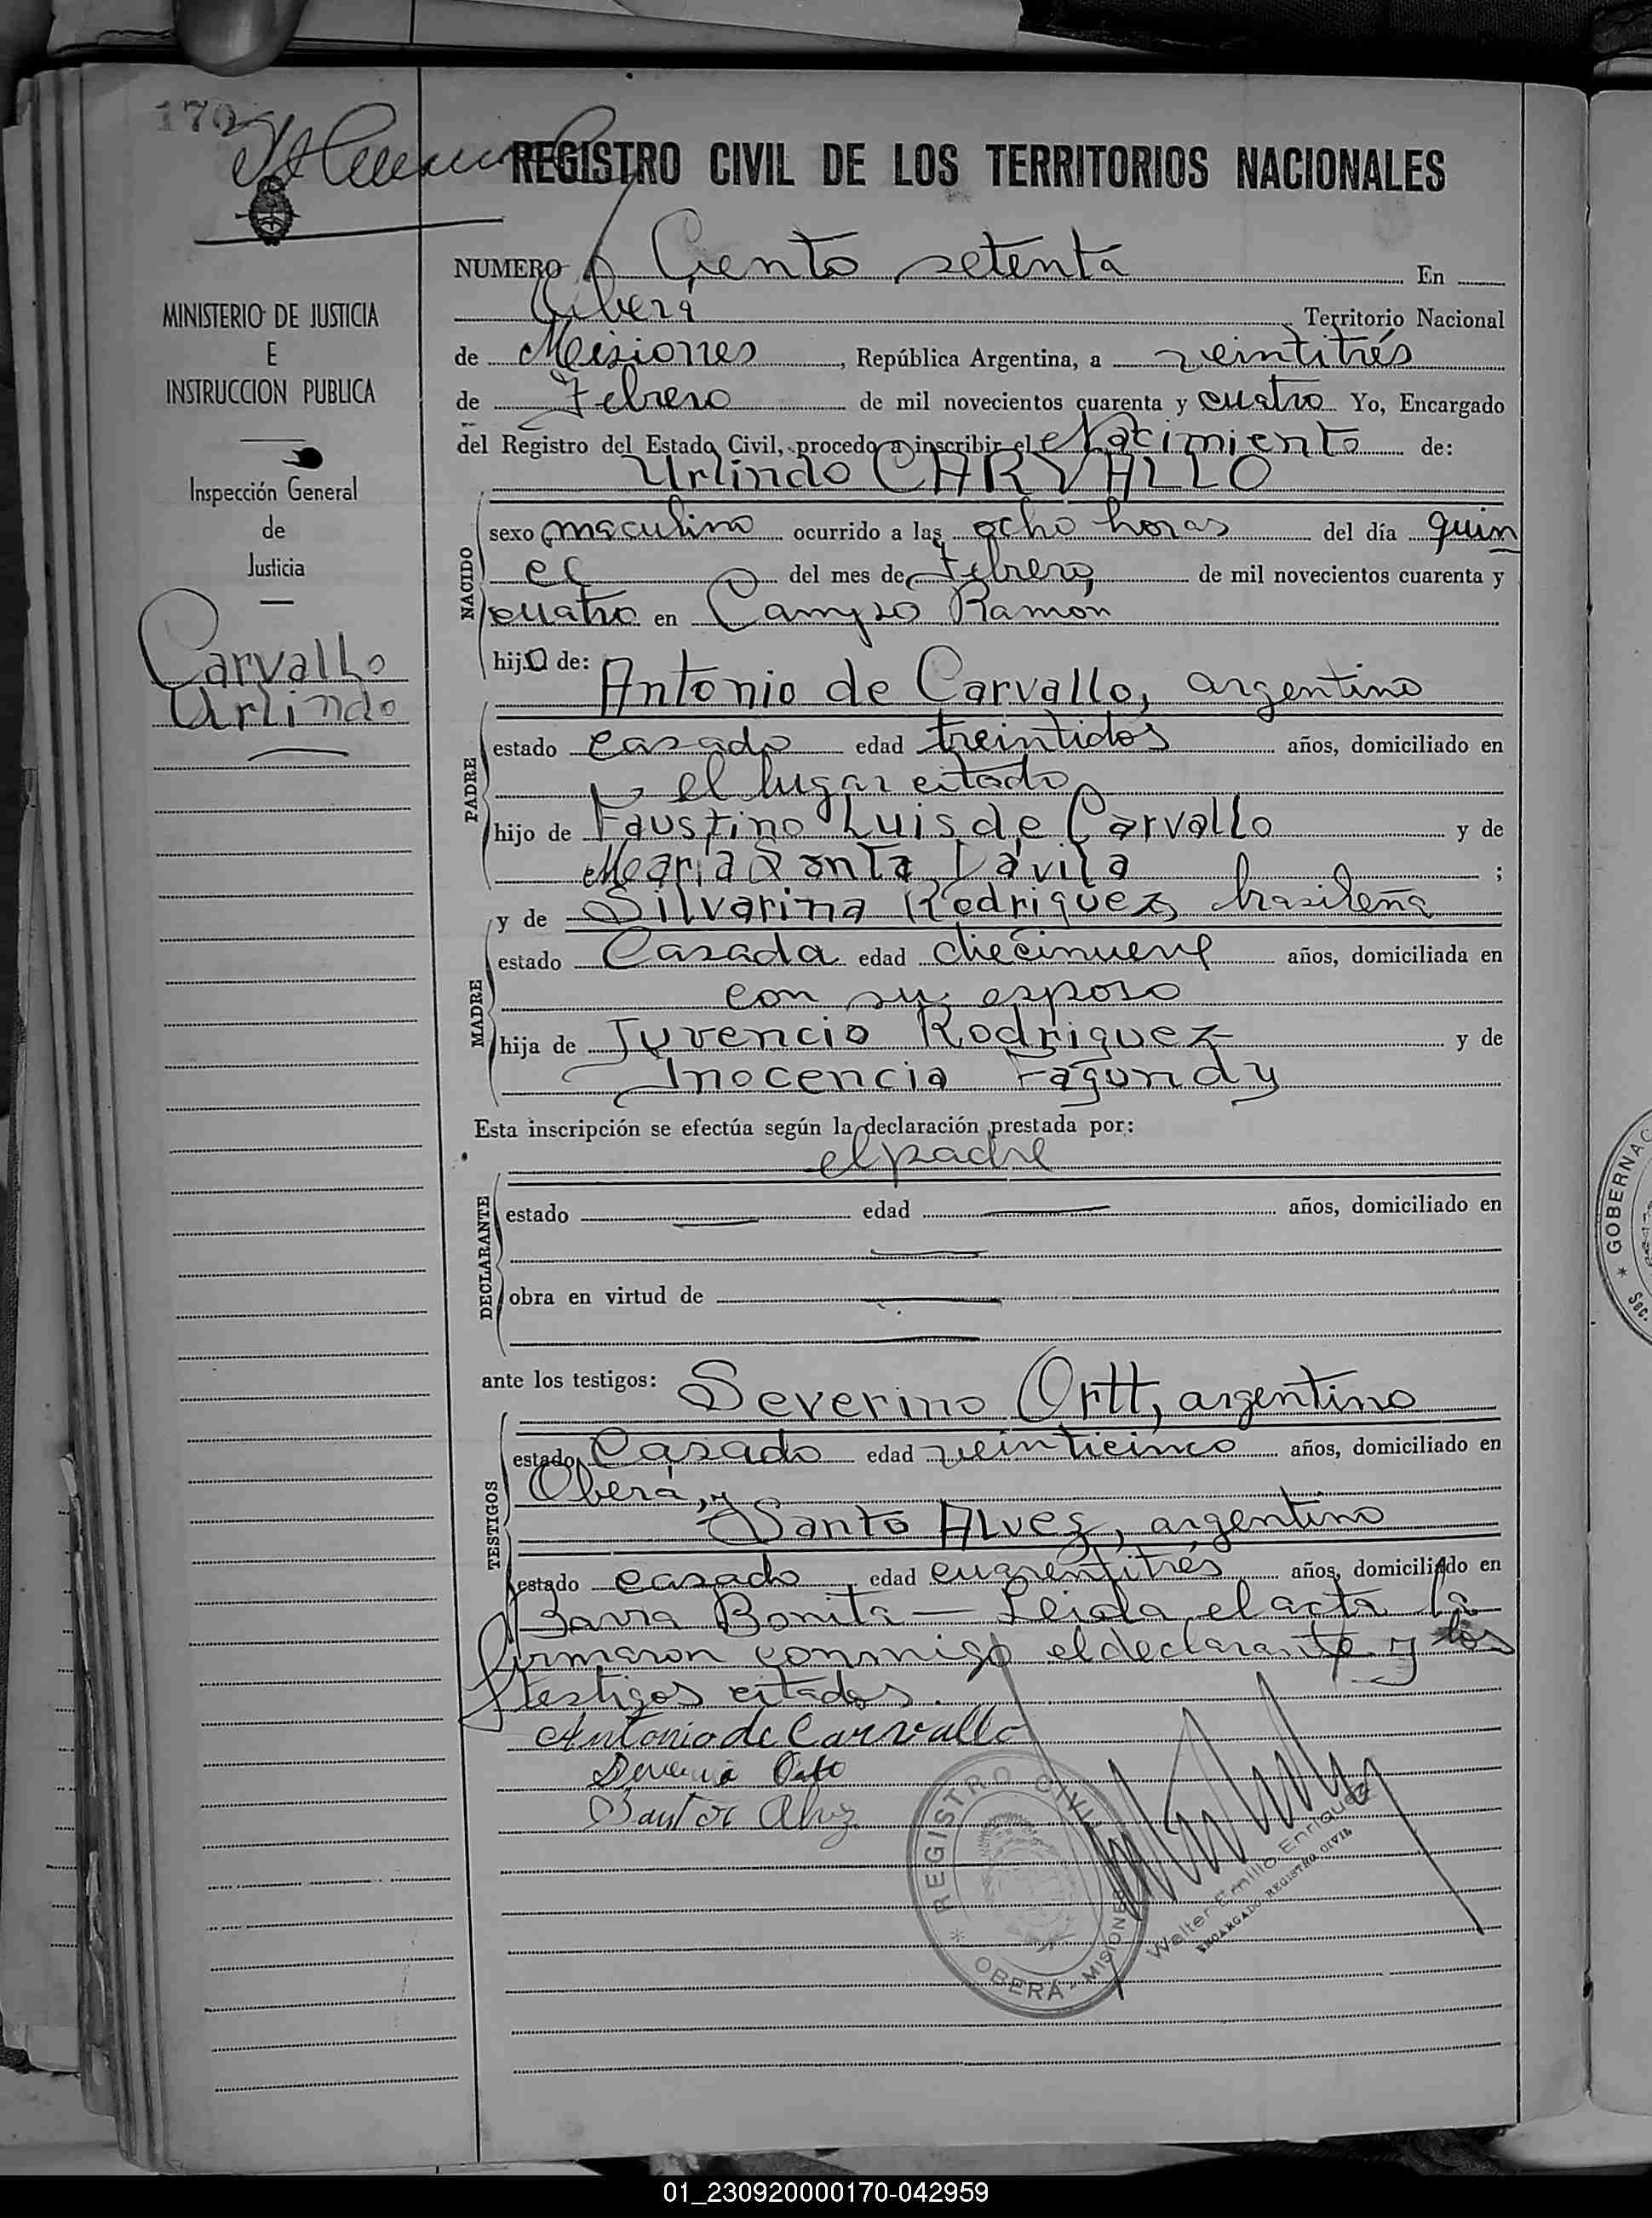 170
REGISTRO CIVIL DE LOS TERRITORIOS NACIONALES
NUMERO Ciento setenta En
Oberá Territorio Nacional
de Misiones, República Argentina, a veintitrés
de Febrero de mil novecientos cuarenta y cuatro Yo, Encargado
del Registro del Estado Civil, procedo a inscribir el Nacimiento de:
Urlindo CARVALLO
MINISTERIO DE JUSTICIA
E
INSTRUCCION PUBLICA
Inspección General
de
Justicia
Carvallo
Urlindo
NACIDO
sexo masculino ocurrido a las ocho horas del día quin
ce del mes de Febrero de mil novecientos cuarenta y
cuatro en Campo Ramón
hijo de: Antonio de Carvallo, argentino
PADRE
estado casado edad treintidos años, domiciliado en
el lugar citado
hijo de Faustino Luis de Carvallo y de
Maria Santa Davila ;
MADRE
y de Silvarina Rodriguez brasileña
estado Casada edad diecinueve años, domiciliada en
con su esposo
hija de Juvencio Rodriguez y de
Inocencia Fagundy
Esta inscripción se efectúa según la declaración prestada por:
el padre
DECLARANTE
estado — edad — años, domiciliado en
—
obra en virtud de —
—
ante los testigos: Severino Ortt, argentino
TESTIGOS
estado Casado edad veinticinco años, domiciliado en
Oberá, y
Santo Alvez, argentino
estado casado edad cuarentitrés años, domiciliado en
Barra Bonita — Leida el acta la
firmaron conmigo el declarante y los
testigos citados.
Antonio de Carvallo
Santos Alvez
REGISTRO CIVIL
* OBERÁ - MISIONES
Walter Emilio Enriquez
ENCARGADO REGISTRO CIVIL
* GOBERNAC
Sec.
01_230920000170-042959